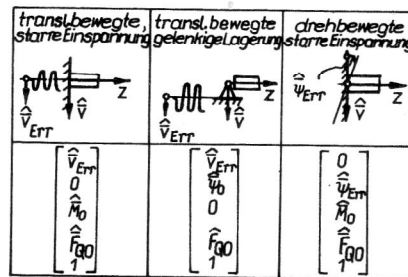 transl. bewegte, starre Einspannung
transl. bewegte gelenkige Lagerung
drehbewegte starre Einspannung
Z
v̂
v̂Err
Z
v̂
v̂Err
ψ̂Err
Z
v̂
v̂Err
0
M̂0
F̂Q0
1
v̂Err
ψ̂0
0
F̂Q0
1
0
ψ̂Err
M̂0
F̂Q0
1